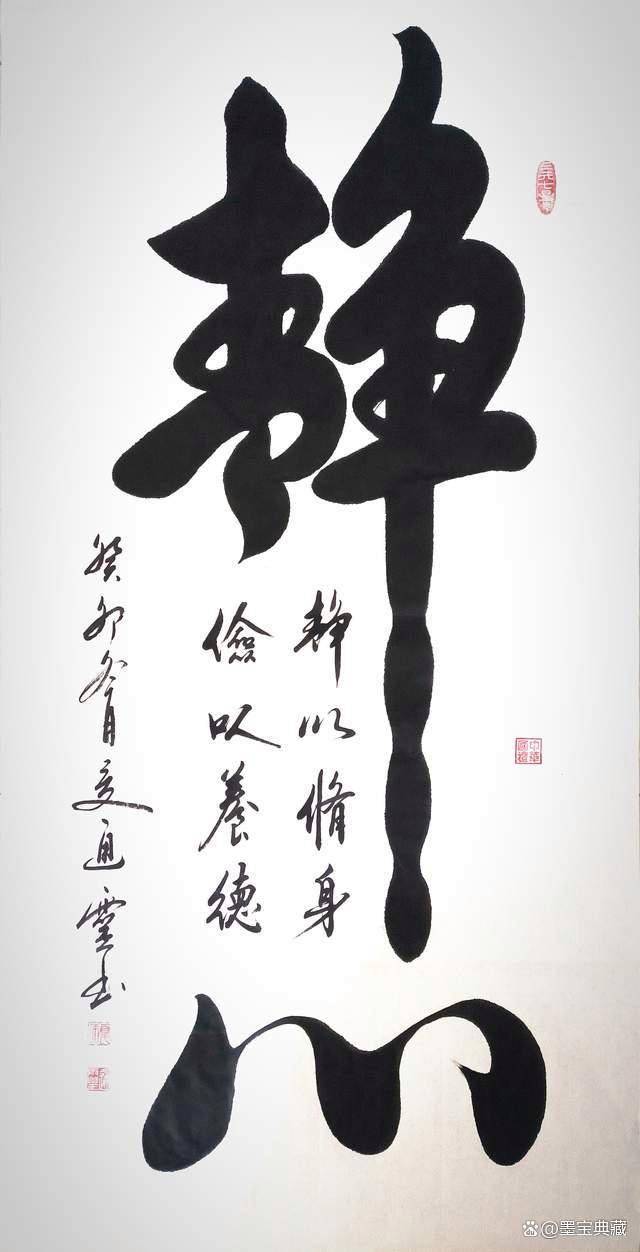 静心
静以脩身
儉以養德
癸卯冬月 通靈书
@墨宝典藏